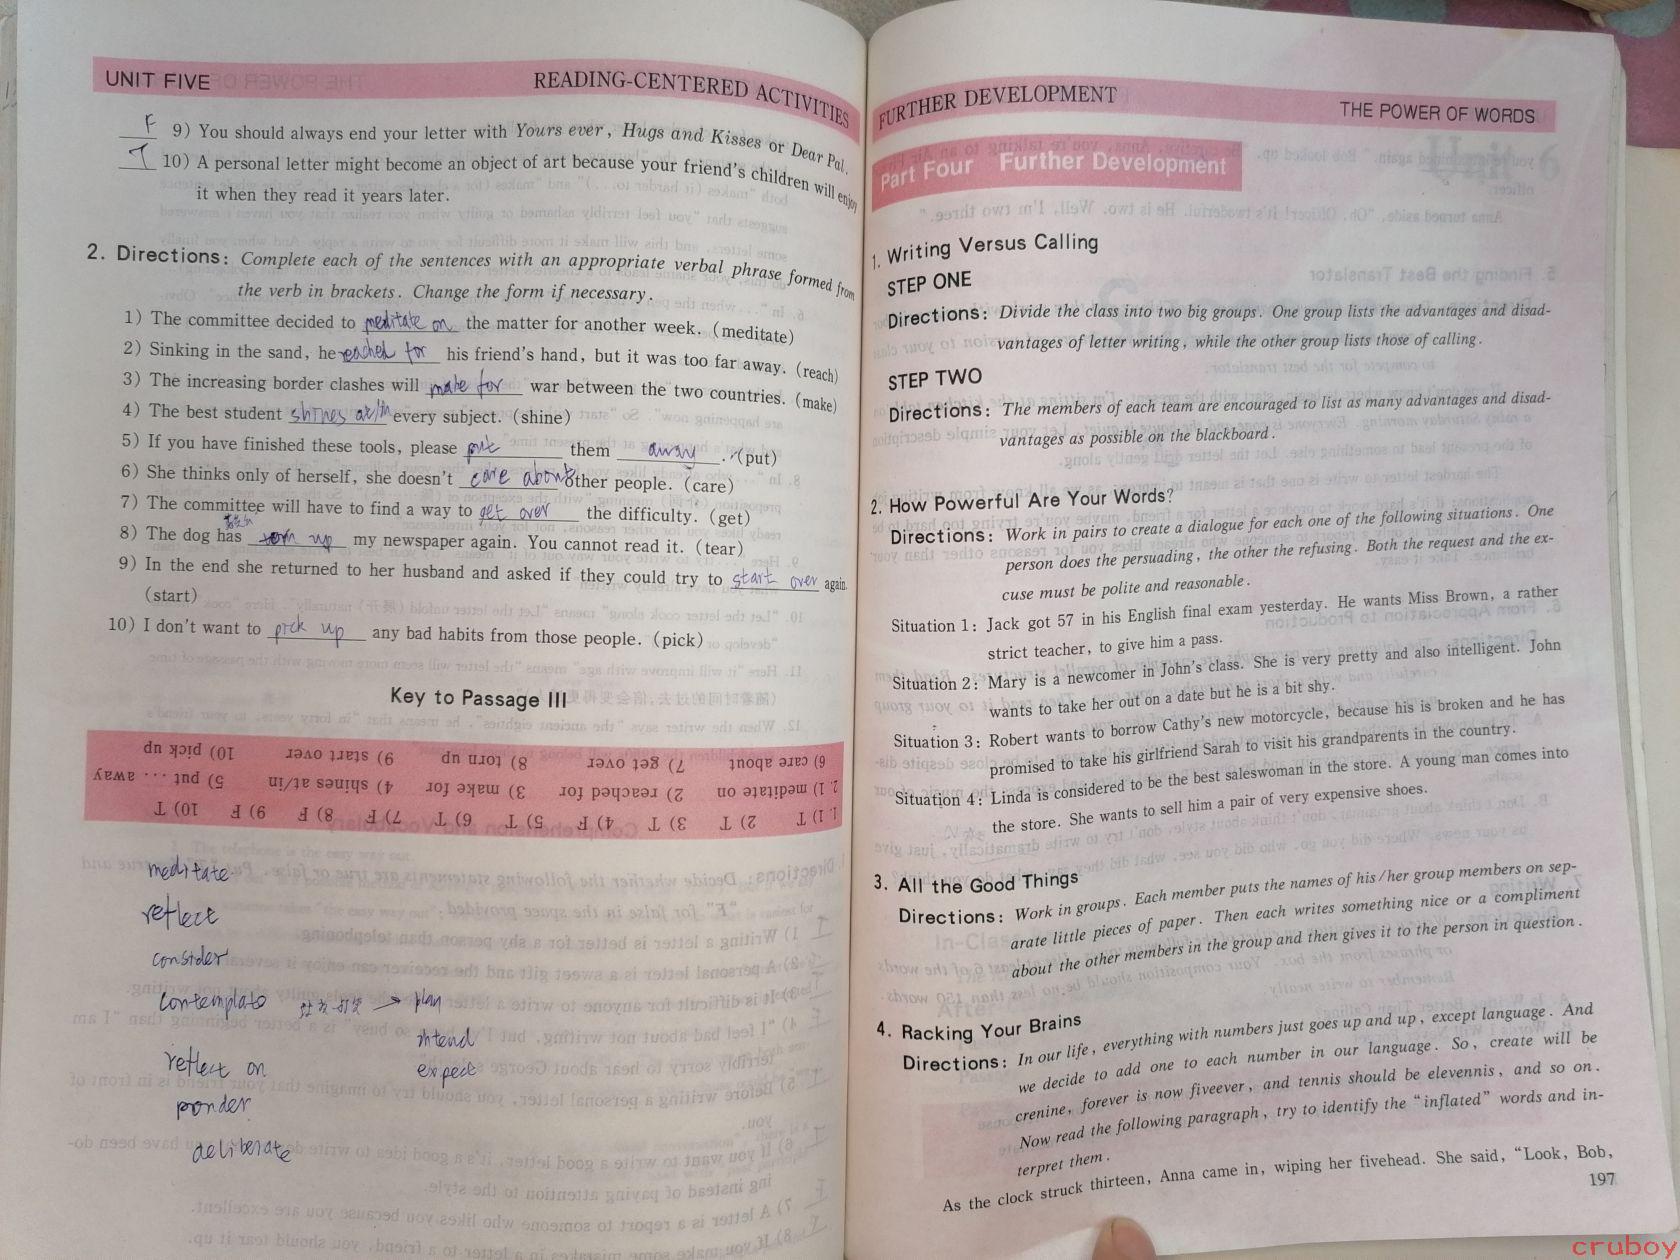 UNIT FIVE READING-CENTERED ACTIVITIES
F 9) You should always end your letter with Yours ever, Hugs and Kisses or Dear Pal.
T 10) A personal letter might become an object of art because your friend's children will enjoy
it when they read it years later.
2. Directions: Complete each of the sentences with an appropriate verbal phrase formed from
the verb in brackets. Change the form if necessary.
1) The committee decided to meditate on the matter for another week. (meditate)
2) Sinking in the sand, he reached for his friend's hand, but it was too far away. (reach)
3) The increasing border clashes will make for war between the two countries. (make)
4) The best student shines at/in every subject. (shine)
5) If you have finished these tools, please put them away. (put)
6) She thinks only of herself, she doesn't care about other people. (care)
7) The committee will have to find a way to get over the difficulty. (get)
8) The dog has torn up my newspaper again. You cannot read it. (tear)
9) In the end she returned to her husband and asked if they could try to start over again.
(start)
10) I don't want to pick up any bad habits from those people. (pick)
Key to Passage III
1. 1) T 2) T 3) T 4) F 5) T 6) T 7) F 8) F 9) F 10) T
2. 1) meditate on 2) reached for 3) make for 4) shines at/in 5) put ... away
6) care about 7) get over 8) torn up 9) start over 10) pick up
meditate
reflect
consider
contemplate → plan
intend
expect
reflect on
ponder
deliberate
FURTHER DEVELOPMENT THE POWER OF WORDS
Part Four Further Development
1. Writing Versus Calling
STEP ONE
Directions: Divide the class into two big groups. One group lists the advantages and disad-
vantages of letter writing, while the other group lists those of calling.
STEP TWO
Directions: The members of each team are encouraged to list as many advantages and disad-
vantages as possible on the blackboard.
2. How Powerful Are Your Words?
Directions: Work in pairs to create a dialogue for each one of the following situations. One
person does the persuading, the other the refusing. Both the request and the ex-
cuse must be polite and reasonable.
Situation 1: Jack got 57 in his English final exam yesterday. He wants Miss Brown, a rather
strict teacher, to give him a pass.
Situation 2: Mary is a newcomer in John's class. She is very pretty and also intelligent. John
wants to take her out on a date but he is a bit shy.
Situation 3: Robert wants to borrow Cathy's new motorcycle, because his is broken and he has
promised to take his girlfriend Sarah to visit his grandparents in the country.
Situation 4: Linda is considered to be the best saleswoman in the store. A young man comes into
the store. She wants to sell him a pair of very expensive shoes.
3. All the Good Things
Directions: Work in groups. Each member puts the names of his/her group members on sep-
arate little pieces of paper. Then each writes something nice or a compliment
about the other members in the group and then gives it to the person in question.
4. Racking Your Brains
Directions: In our life, everything with numbers just goes up and up, except language. And
we decide to add one to each number in our language. So, create will be
crenine, forever is now fiveever, and tennis should be elevennis, and so on.
Now read the following paragraph, try to identify the "inflated" words and in-
terpret them.
As the clock struck thirteen, Anna came in, wiping her fivehead. She said, "Look, Bob,
197
cruboy